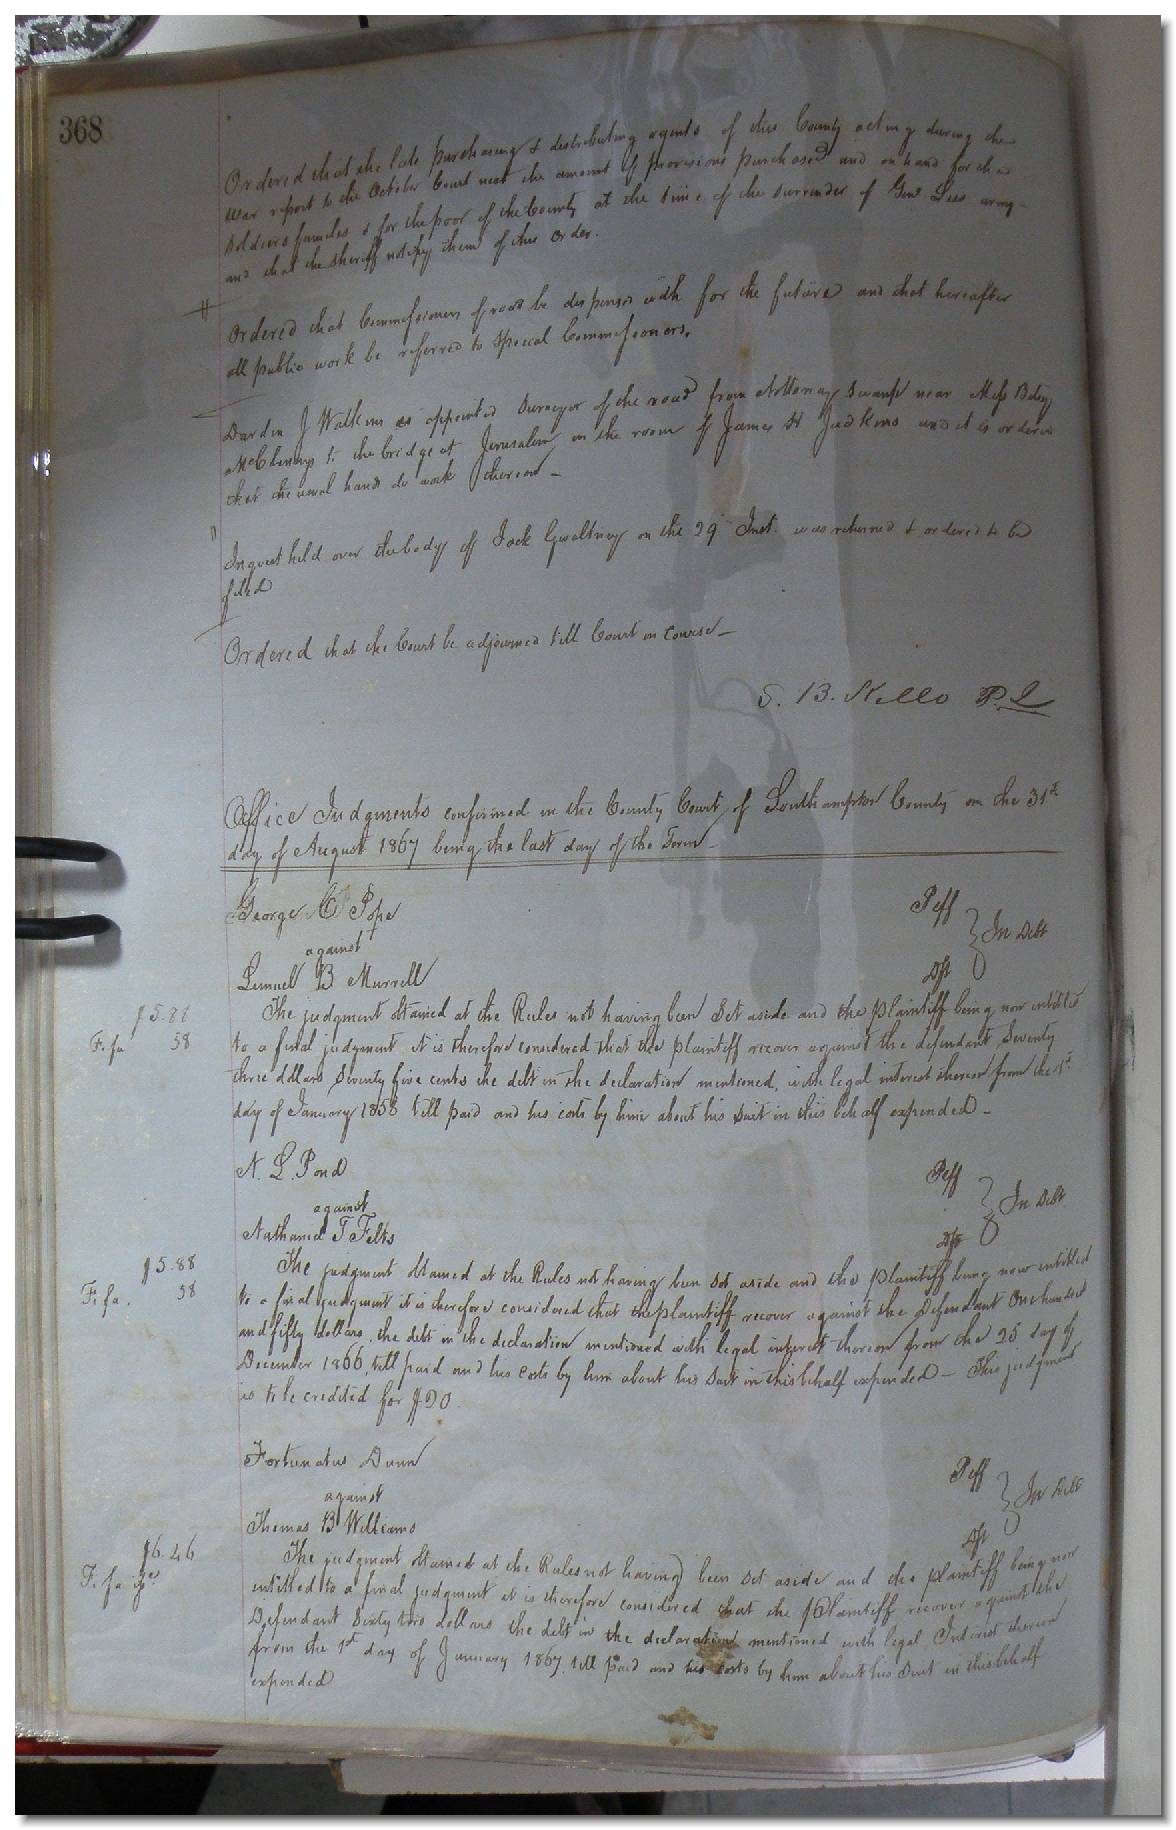 368
Ordered that the late purchasing & distributing agents of this County acting during the
war report to the October Court next the amount of provisions purchased and on hand for the
soldiers families & for the poor of the County at the time of the surrender of Genl Lees army
and that the sheriff notify them of this order.
Ordered that Commissioners of roads be dispensed with for the future and that hereafter
all public work be referred to special Commissioners.
Darden J Watkins is appointed surveyor of the road from Nottoway Swamp near Miss Betsy
to the bridge at Jerusalem in the room of James H Judkins and it is ordered
that the usual hands do work thereon –
Inquest held over the body of Jack Gwaltney on the 29 Inst. was returned & ordered to be
filed
Ordered that the Court be adjourned till Court in course –
S. B. Kello P. J.
Office Judgments confirmed in the County Court of Southampton County on the 31st
day of August 1867 being the last day of the Term –
George C Pope Plff
against } In Debt
Lemuel B Murrell Dft
The judgment obtained at the Rules not having been set aside and the plaintiff being now entitled
to a final judgment it is therefore considered that the plaintiff recover against the defendant Seventy
three dollars Seventy five cents the debt in the declaration mentioned, with legal interest thereon from the 1st
day of January 1858 till paid and his costs by him about his suit in this behalf expended –
$5.88
Fi. fa 58
N. L. Pond Plff
against } In Debt
Nathaniel T Felts Dft
The judgment obtained at the Rules not having been set aside and the plaintiff being now entitled
to a final judgment it is therefore considered that the plaintiff recover against the Defendant One hundred
and fifty dollars, the debt in the declaration mentioned with legal interest thereon from the 25 day of
December 1866, till paid and his costs by him about his suit in this behalf expended – This judgment
is to be credited for $20.
$5.88
Fi. fa. 58
Fortunatus Dunn Plff
against } In Debt
Thomas B Williams Dft
The judgment obtained at the Rules not having been set aside and the plaintiff being now
entitled to a final judgment it is therefore considered that the Plaintiff recover against the
Defendant Sixty two dollars the debt in the declaration mentioned with legal Interest thereon
from the 1st day of January 1867, till paid and his costs by him about his suit in this behalf
expended
$6.46
Fi. fa